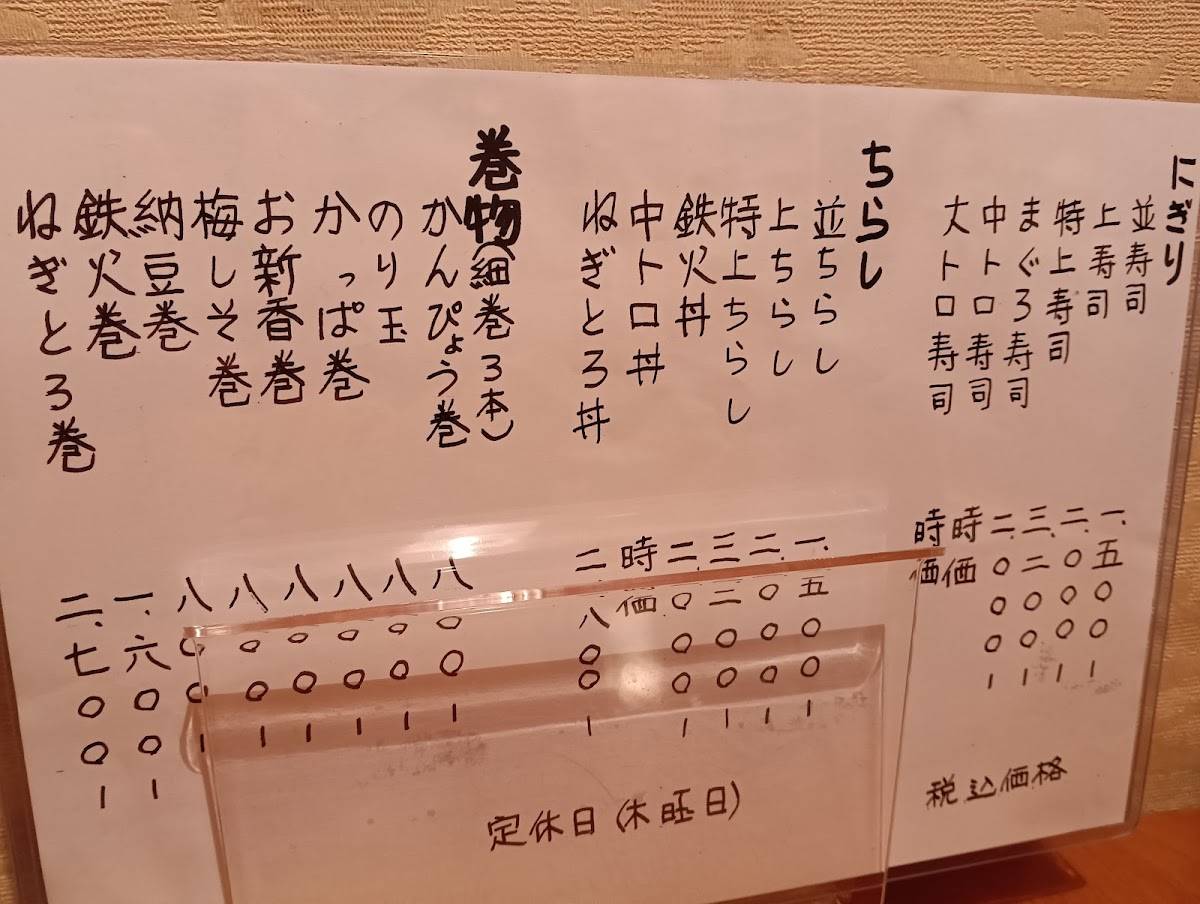 にぎり
並寿司 一、五〇〇ー
上寿司 二、〇〇〇ー
特上寿司 三、二〇〇ー
まぐろ寿司 二、〇〇〇ー
中トロ寿司 時価
大トロ寿司 時価
ちらし
並ちらし 一、五〇〇ー
上ちらし 二、〇〇〇ー
特上ちらし 三、二〇〇ー
鉄火丼 二、〇〇〇ー
中トロ丼 時価
ねぎとろ丼 二、八〇〇ー
巻物(細巻3本)
かんぴょう巻 八〇〇ー
のり玉 八〇〇ー
かっぱ巻 八〇〇ー
お新香巻 八〇〇ー
梅しそ巻 八〇〇ー
納豆巻 八〇〇ー
鉄火巻 一、六〇〇ー
ねぎとろ巻 二、七〇〇ー
税込価格
定休日(木曜日)